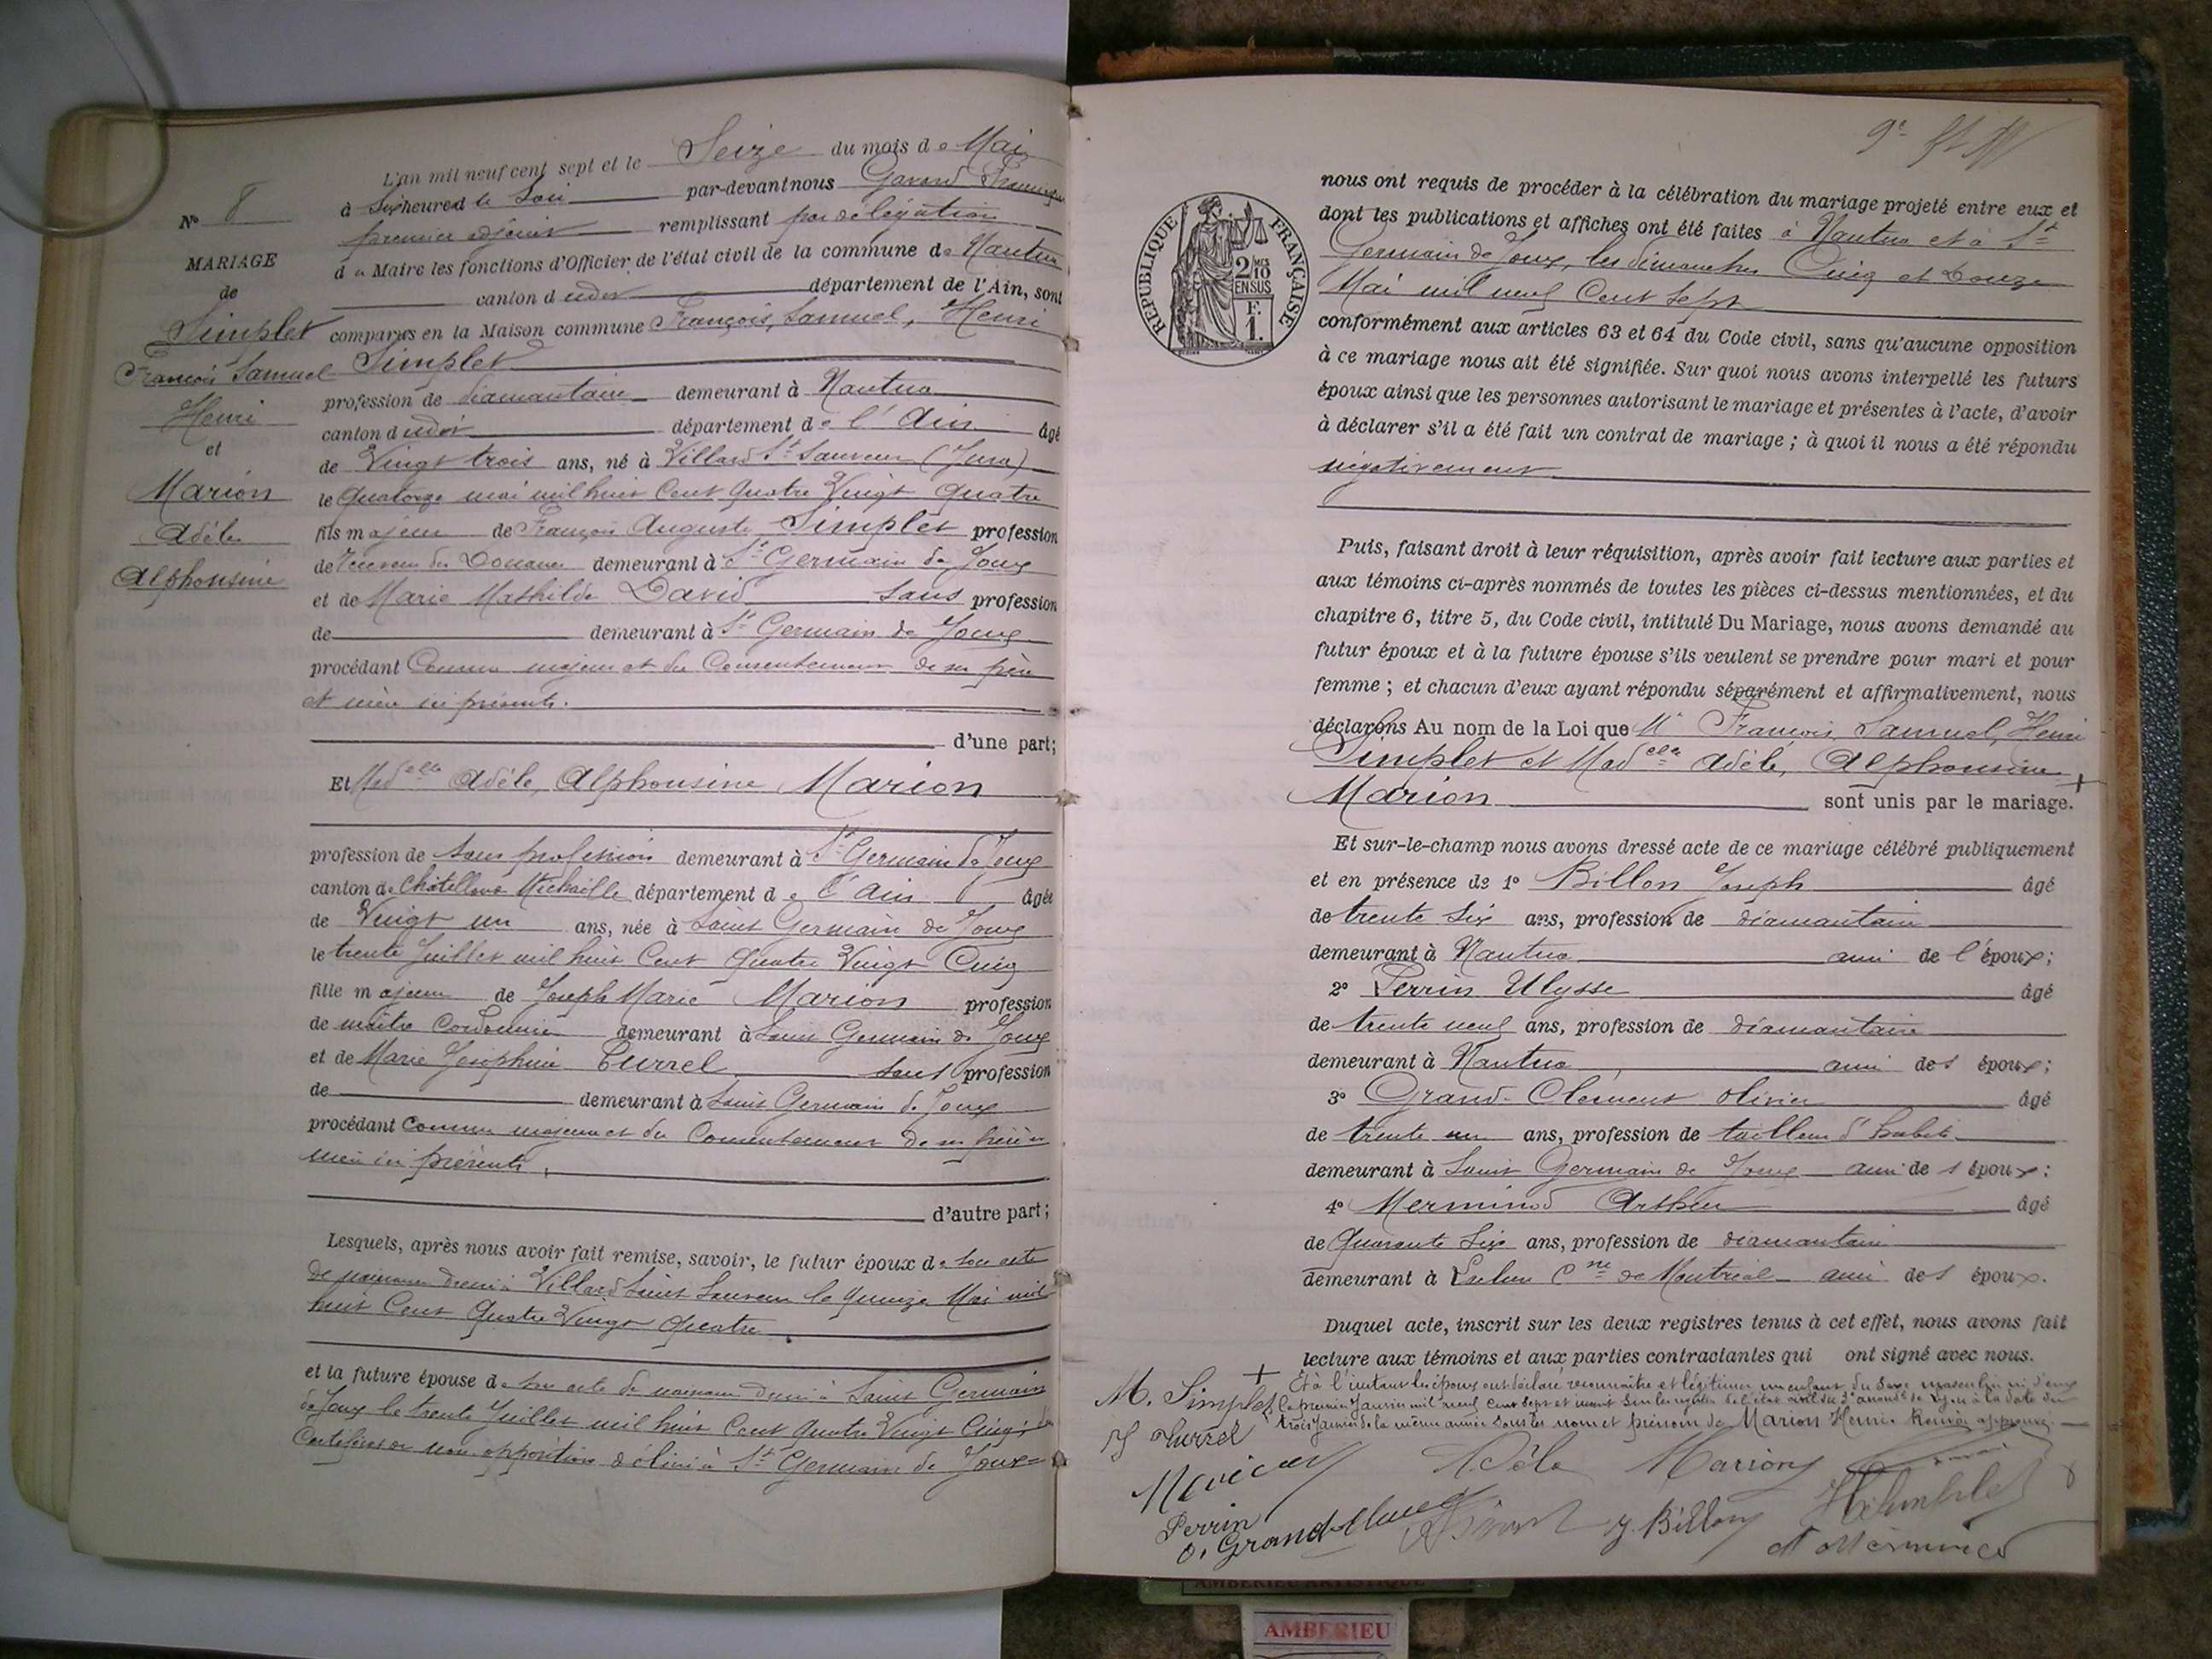 L'an mil neuf cent sept et le Seize du mois de Mai
à Six heures d le Soir par-devant nous Gavard François
premier adjoint remplissant par délégation
du Maire les fonctions d'Officier de l'état civil de la commune de Nantua
canton dudit département de l'Ain, sont
comparus en la Maison commune François, Samuel, Henri
Simplet
profession de diamantaire demeurant à Nantua
canton dudit département de l'Ain âgé
de Vingt trois ans, né à Villard St Sauveur (Jura)
le quatorze mai mil huit Cent Quatre Vingt Quatre
fils majeur de François Auguste Simplet profession
de Receveur des Douanes demeurant à St Germain de Joux
et de Marie Mathilde David sans profession
de demeurant à St Germain de Joux
procédant Comme majeur et du Consentement de ses père
et mère ici présents.
d'une part;
Et Medelle Adèle, Alphonsine Marion
profession de sans profession demeurant à St Germain de Joux
canton de Châtillon Michaille département de l'Ain âgée
de Vingt un ans, née à Saint Germain de Joux
le trente Juillet mil huit Cent Quatre Vingt Cinq
fille majeure de Joseph Marie Marion profession
de maître Cordonnier demeurant à Saint Germain de Joux
et de Marie Joséphine Turrel sans profession
de demeurant à Saint Germain de Joux
procédant Comme majeure et du Consentement de ses père et
mère ici présents,
d'autre part;
Lesquels, après nous avoir fait remise, savoir, le futur époux de son acte
de naissance dressé à Villard Saint Sauveur le quinze Mai mil
huit Cent Quatre Vingt Quatre
et la future épouse de son acte de naissance dressé à Saint Germain
de Joux le trente Juillet mil huit Cent Quatre Vingt Cinq;
Certificat de non opposition délivré à St Germain de Joux
N° 8
MARIAGE
de
Simplet
François Samuel
Henri
et
Marion
Adèle
Alphonsine
9e
RÉPUBLIQUE FRANÇAISE
2/10 EN SUS
F.
1.
nous ont requis de procéder à la célébration du mariage projeté entre eux et
dont les publications et affiches ont été faites à Nantua et à St
Germain de Joux, les dimanches Cinq et Douze
Mai mil neuf Cent Sept
conformément aux articles 63 et 64 du Code civil, sans qu'aucune opposition
à ce mariage nous ait été signifiée. Sur quoi nous avons interpellé les futurs
époux ainsi que les personnes autorisant le mariage et présentes à l'acte, d'avoir
à déclarer s'il a été fait un contrat de mariage ; à quoi il nous a été répondu
négativement
Puis, faisant droit à leur réquisition, après avoir fait lecture aux parties et
aux témoins ci-après nommés de toutes les pièces ci-dessus mentionnées, et du
chapitre 6, titre 5, du Code civil, intitulé Du Mariage, nous avons demandé au
futur époux et à la future épouse s'ils veulent se prendre pour mari et pour
femme ; et chacun d'eux ayant répondu séparément et affirmativement, nous
déclarons Au nom de la Loi que Mr François, Samuel, Henri
Simplet et Madelle Adèle, Alphonsine +
Marion sont unis par le mariage.
Et sur-le-champ nous avons dressé acte de ce mariage célébré publiquement
et en présence de 1° Billon Joseph âgé
de trente six ans, profession de diamantaire
demeurant à Nantua ami de l'époux;
2° Perrin Ulysse âgé
de trente neuf ans, profession de diamantaire
demeurant à Nantua ami des époux;
3° Grand-Clément Olivier âgé
de trente un ans, profession de tailleur d'habits
demeurant à Saint Germain de Joux ami des époux:
4° Merminod Arthur âgé
de Quarante Six ans, profession de diamantaire
demeurant à Cne de Montréal ami des époux.
Duquel acte, inscrit sur les deux registres tenus à cet effet, nous avons fait
lecture aux témoins et aux parties contractantes qui ont signé avec nous.
+ Et à l'instant les époux ont déclaré reconnaître et légitimer un enfant du sexe masculin né d'eux
le premier Janvier mil neuf cent sept et inscrit sur les registres de l'état civil du 2e arrondt de Lyon à la date du
trois Janvier de la même année sous les nom et prénom de Marion Henri. Renvoi approuvé.
M. Simplet
J Turrel
Marion
Adèle Marion
Perrin
O. Grand-Clément
J. Billon
H Simplet
A Merminod
AMBERIEU ARTISTIQUE
AMBERIEU